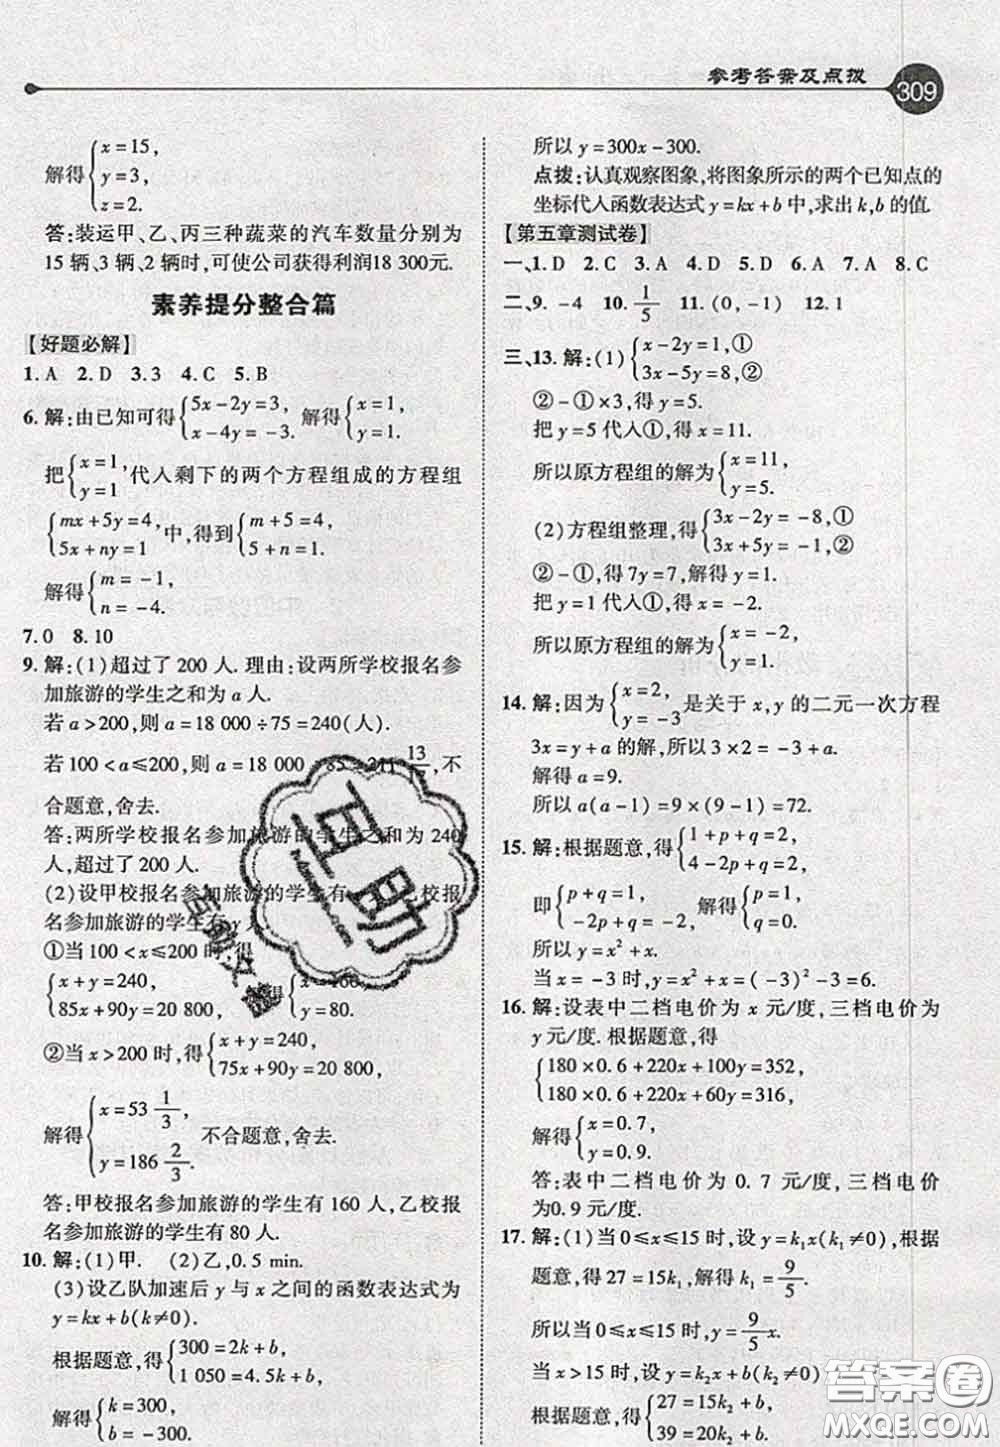 参考答案及点拨 309
解得{x=15,
y=3,
z=2.
答:装运甲、乙、丙三种蔬菜的汽车数量分别为
15 辆、3 辆、2 辆时,可使公司获得利润18 300元.
素养提分整合篇
【好题必解】
1. A 2. D 3. 3 4. C 5. B
6. 解:由已知可得{5x-2y=3, x-4y=-3. 解得{x=1, y=1.
把{x=1, y=1 代入剩下的两个方程组成的方程组
{mx+5y=4, 5x+ny=1 中,得到{m+5=4, 5+n=1.
解得{m=-1, n=-4.
7. 0 8. 10
9. 解:(1)超过了 200 人. 理由:设两所学校报名参
加旅游的学生之和为 a 人.
若 a>200,则 a=18 000÷75=240(人).
若 100<a≤200,则 a=18 000 85=211 13/ ,不
合题意,舍去.
答:两所学校报名参加旅游的学生之和为 240
人,超过了 200 人.
(2)设甲校报名参加旅游的学生有
名参加旅游的学生有 y
①当 100<x≤200 时,得
{x+y=240, 85x+90y=20 800, 解得{x=160, y=80.
②当 x>200 时,得{x+y=240, 75x+90y=20 800,
解得{x=53 1/3, y=186 2/3. 不合题意,舍去.
答:甲校报名参加旅游的学生有 160 人,乙校报
名参加旅游的学生有 80 人.
10. 解:(1)甲. (2)乙,0.5 min.
(3)设乙队加速后 y 与 x 之间的函数表达式为
y=kx+b(k≠0).
根据题意,得{300=2k+b, 1 050=4.5k+b,
解得{k=300, b=-300.
所以 y=300x-300.
点拨:认真观察图象,将图象所示的两个已知点的
坐标代入函数表达式 y=kx+b 中,求出 k,b 的值.
【第五章测试卷】
一、1. D 2. C 3. A 4. D 5. A 6. A 7. A 8. C
二、9. -4 10. 1/5 11. (0,-1) 12. 1
三、13. 解:(1){x-2y=1,① 3x-5y=8,②
②-①×3,得 y=5.
把 y=5 代入①,得 x=11.
所以原方程组的解为{x=11, y=5.
(2)方程组整理,得{3x-2y=-8,① 3x+5y=-1,②
②-①,得 7y=7,解得 y=1.
把 y=1 代入①,得 x=-2.
所以原方程组的解为{x=-2, y=1.
14. 解:因为{x=2, y=-3 是关于 x,y 的二元一次方程
3x=y+a 的解,所以 3×2=-3+a.
解得 a=9.
所以 a(a-1)=9×(9-1)=72.
15. 解:根据题意,得{1+p+q=2, 4-2p+q=2,
即{p+q=1, -2p+q=-2, 解得{p=1, q=0.
所以 y=x²+x.
当 x=-3 时,y=x²+x=(-3)²-3=6.
16. 解:设表中二档电价为 x 元/度,三档电价为
y元/度. 根据题意,得
{180×0.6+220x+100y=352, 180×0.6+220x+60y=316,
解得{x=0.7, y=0.9.
答:表中二档电价为 0.7 元/度,三档电价
为0.9 元/度.
17. 解:(1)当 0≤x≤15 时,设 y=k₁x(k₁≠0),根据
题意,得 27=15k₁,解得 k₁=9/5.
所以当 0≤x≤15 时,y=9/5x.
当 x>15 时,设 y=k₂x+b(k₂≠0),
根据题意,得{27=15k₂+b, 39=20k₂+b.
互助
互助文馨
答案圈
MXQE.COM